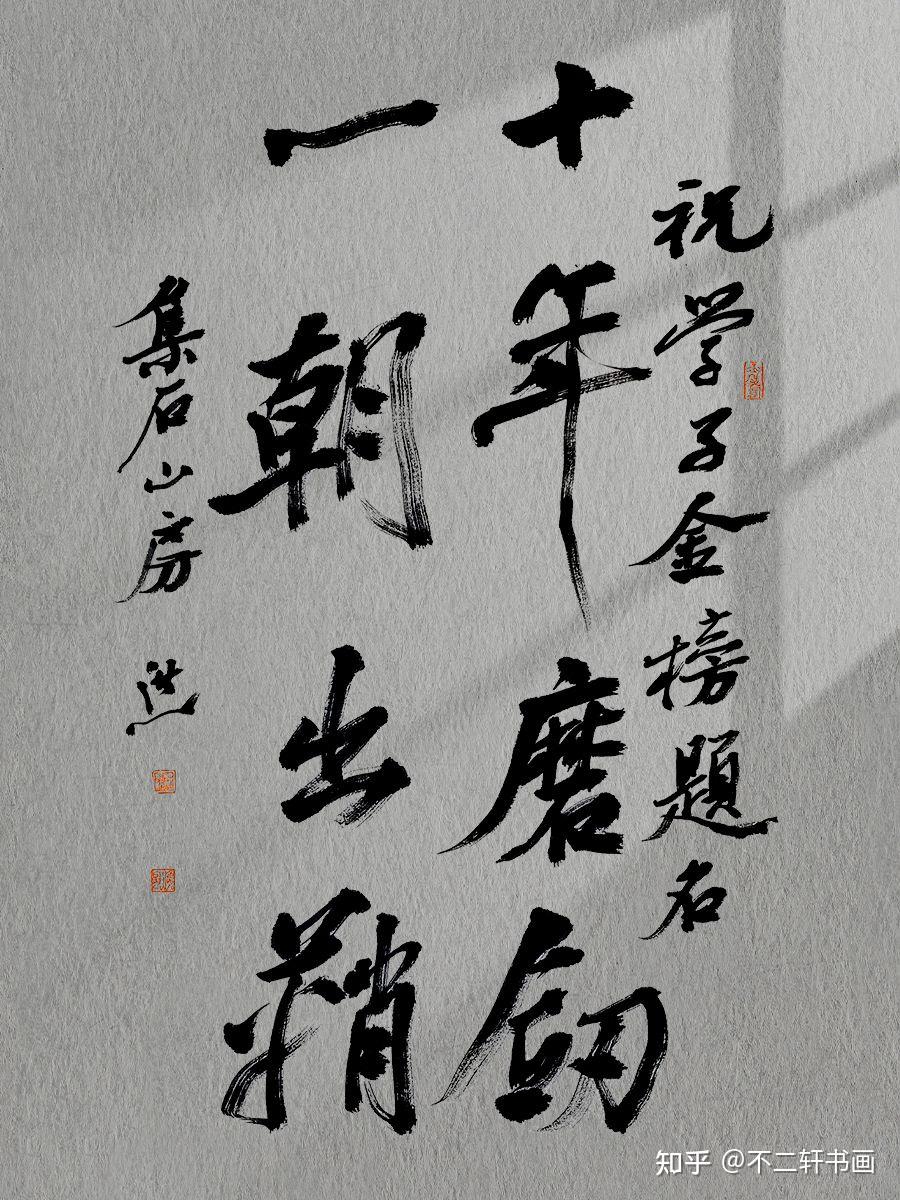 祝学子金榜題名
十年磨劍
一朝出鞘
集石山房
知乎 @不二轩书画